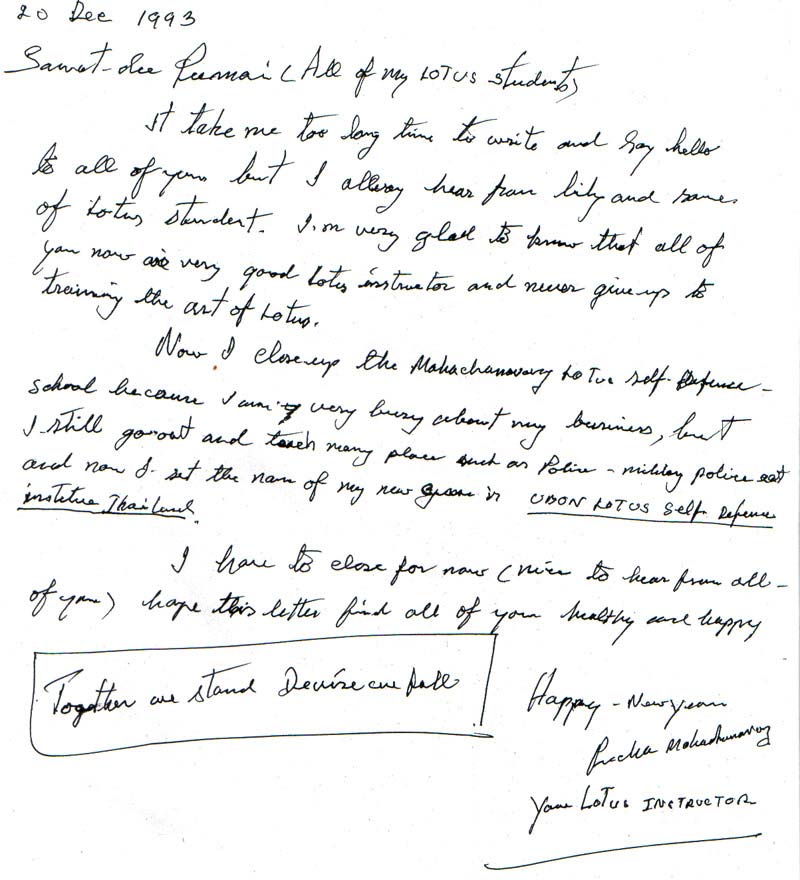 20 Dec 1993
Sawat-dee Peemai (All of my LOTUS students)
It take me too long time to write and say hello
to all of you but I allway hear from lily and some
of Lotus student. I.m very glad to know that all of
you now are very good Lotus instructor and never give up to
training the art of Lotus.
Now I close up the Mahachanavong LOTUS self-Defense-
school because I am very busy about my business, but
I still go out and teach many place such as Police - military police ect
and now I set the name of my new in UBON LOTUS Self Defense
institute Thailand.
I have to close for now (nice to hear from all-
of you) hope this letter find all of you healthy and happy
Together we stand Devise we fall
Happy - New year
Mahachanavong
Your LOTUS INSTRUCTOR